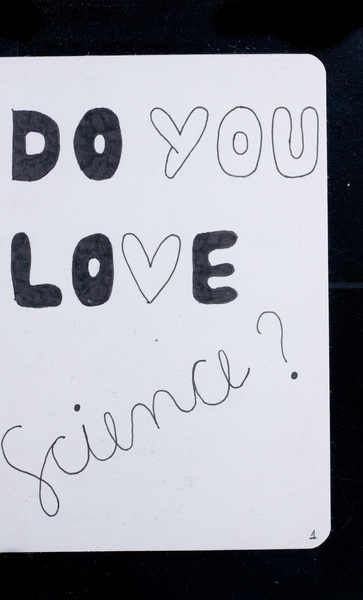 DO YOU
LOVE
Science?
1